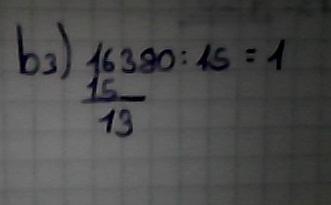 b3) 16380:15 = 1
15
13